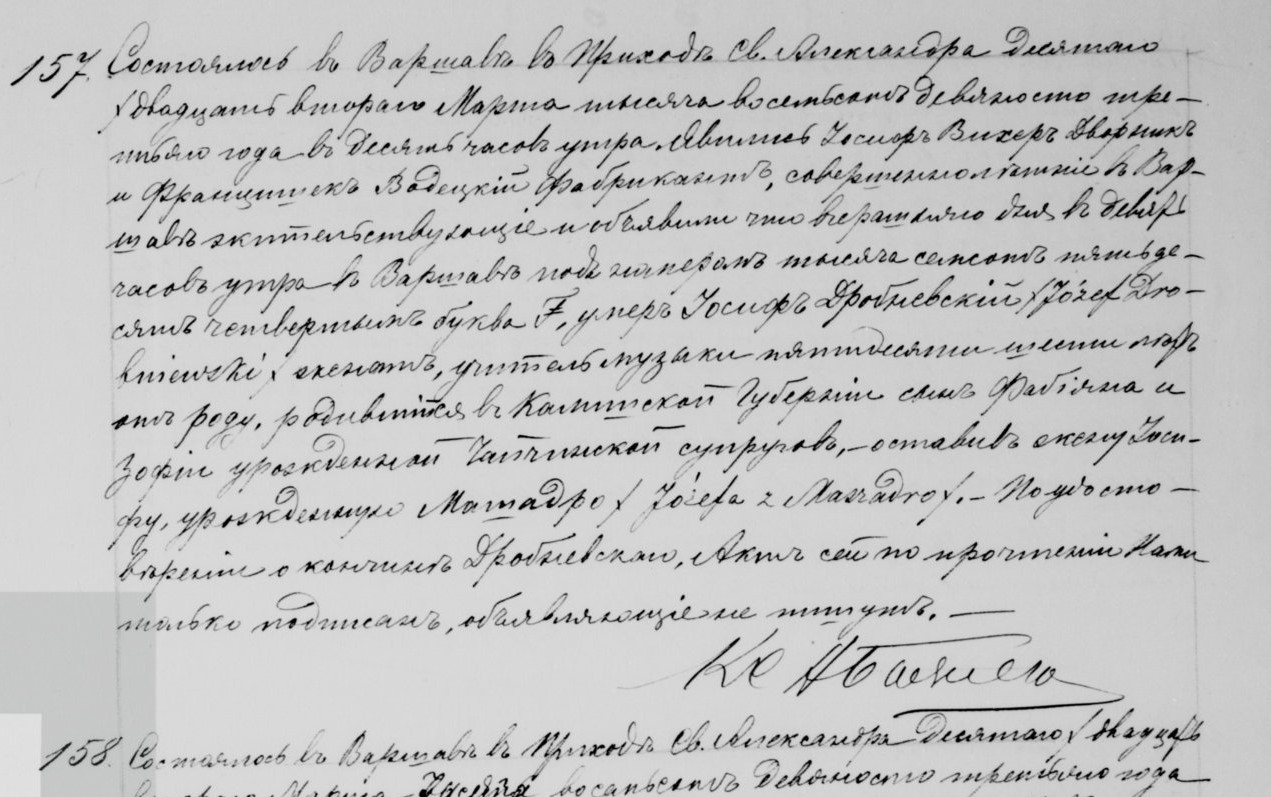 157. Состоялось въ Варшавѣ въ Приходѣ Св. Александра Десятаго
/двадцать втораго Марта тысяча восемьсотъ девяносто тре-
тьяго года въ десять часовъ утра. Явились Іосифъ Вихеръ Дворникъ
и Францишекъ Водецкій Фабрикантъ, совершеннолѣтніе въ Вар-
шавѣ жительствующіе и объявили что вчерашняго дня въ девять
часовъ утра въ Варшавѣ подъ номеромъ тысяча семсотъ пятьде-
сятъ четвертымъ буква F, умеръ Іосифъ Дробневскій /Józef Dro-
bniewski/ женатъ, учитель музыки пятидесяти шести лѣтъ
отъ роду, родившійся въ Калишской Губерніи сынъ Фабіяна и
Зофіи урожденной супруговъ, – оставивъ жену Іози-
фу, урожденную Машадро / Józefa z Maszadro /. – По удосто-
вѣреніи о кончинѣ Дробневскаго, Актъ сей по прочтеніи Нами
только подписанъ, объявляющіе не пишутъ. —
Кс
158. Состоялось въ Варшавѣ въ Приходѣ Св. Александра Десятаго / двадцать
втораго Марта тысяча восемьсотъ девяносто третьяго года